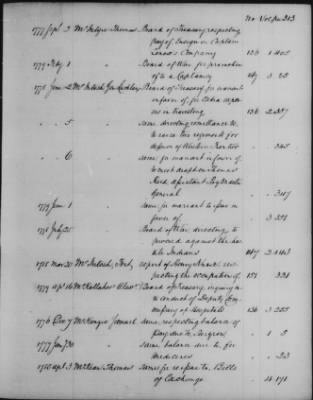 No Vol. Pa. 313
1777 Sept 3 McIntyre Thomas Board of Treasury respecting
pay of Ensign in Captain
Company 136 1 405
1779 Feby 1 Board of War for promotion
of to a Captaincy 147 3 53
1778 June 2 McIntosh Gen Lachlan Board of Treasury for warrant
in favor of, for Extra expenses
in travelling 136 2 337
" " 5 same, directing remittance to,
to raise two regiments for
defence of Western Frontier " " 345
" " 6 same for warrant in favor of
to meet draft on Thomas
Reed assistant Pay Master
General " " 347
1779 June 1 same for warrant to &c in
favor of " 3 371
1778 July 25 Board of War directing to
proceed against the hostile
Indians 147 2 143
1778 Nov 30 McIntosh, Fort, report of
respecting the occupation of 151 331
1779 Board of Treasury, inquiry as
to conduct of Deputy Commissary
of Hospitals 136 3 255
1776 Dec 7 McKenzie Samuel same, respecting balance of
pay due to Surgeon " 1 5
1777 Jany 30 same balance due to for
medicines " " 23
1780 3 McKean Thomas same for re-pair to, Bills
of Exchange " 4 171